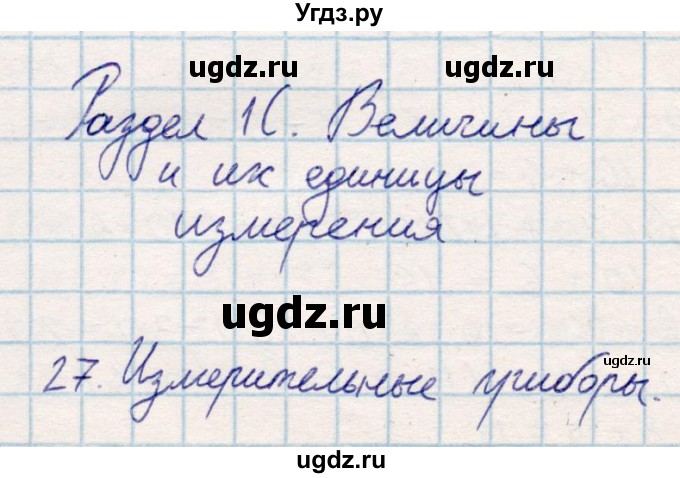 Угдз.ру
ugdz.ru ugdz.ru
Раздел 1С. Величины
и их единицы
измерения
ugdz.ru
ugdz.ru
27. Измерительные приборы.
ugdz.ru